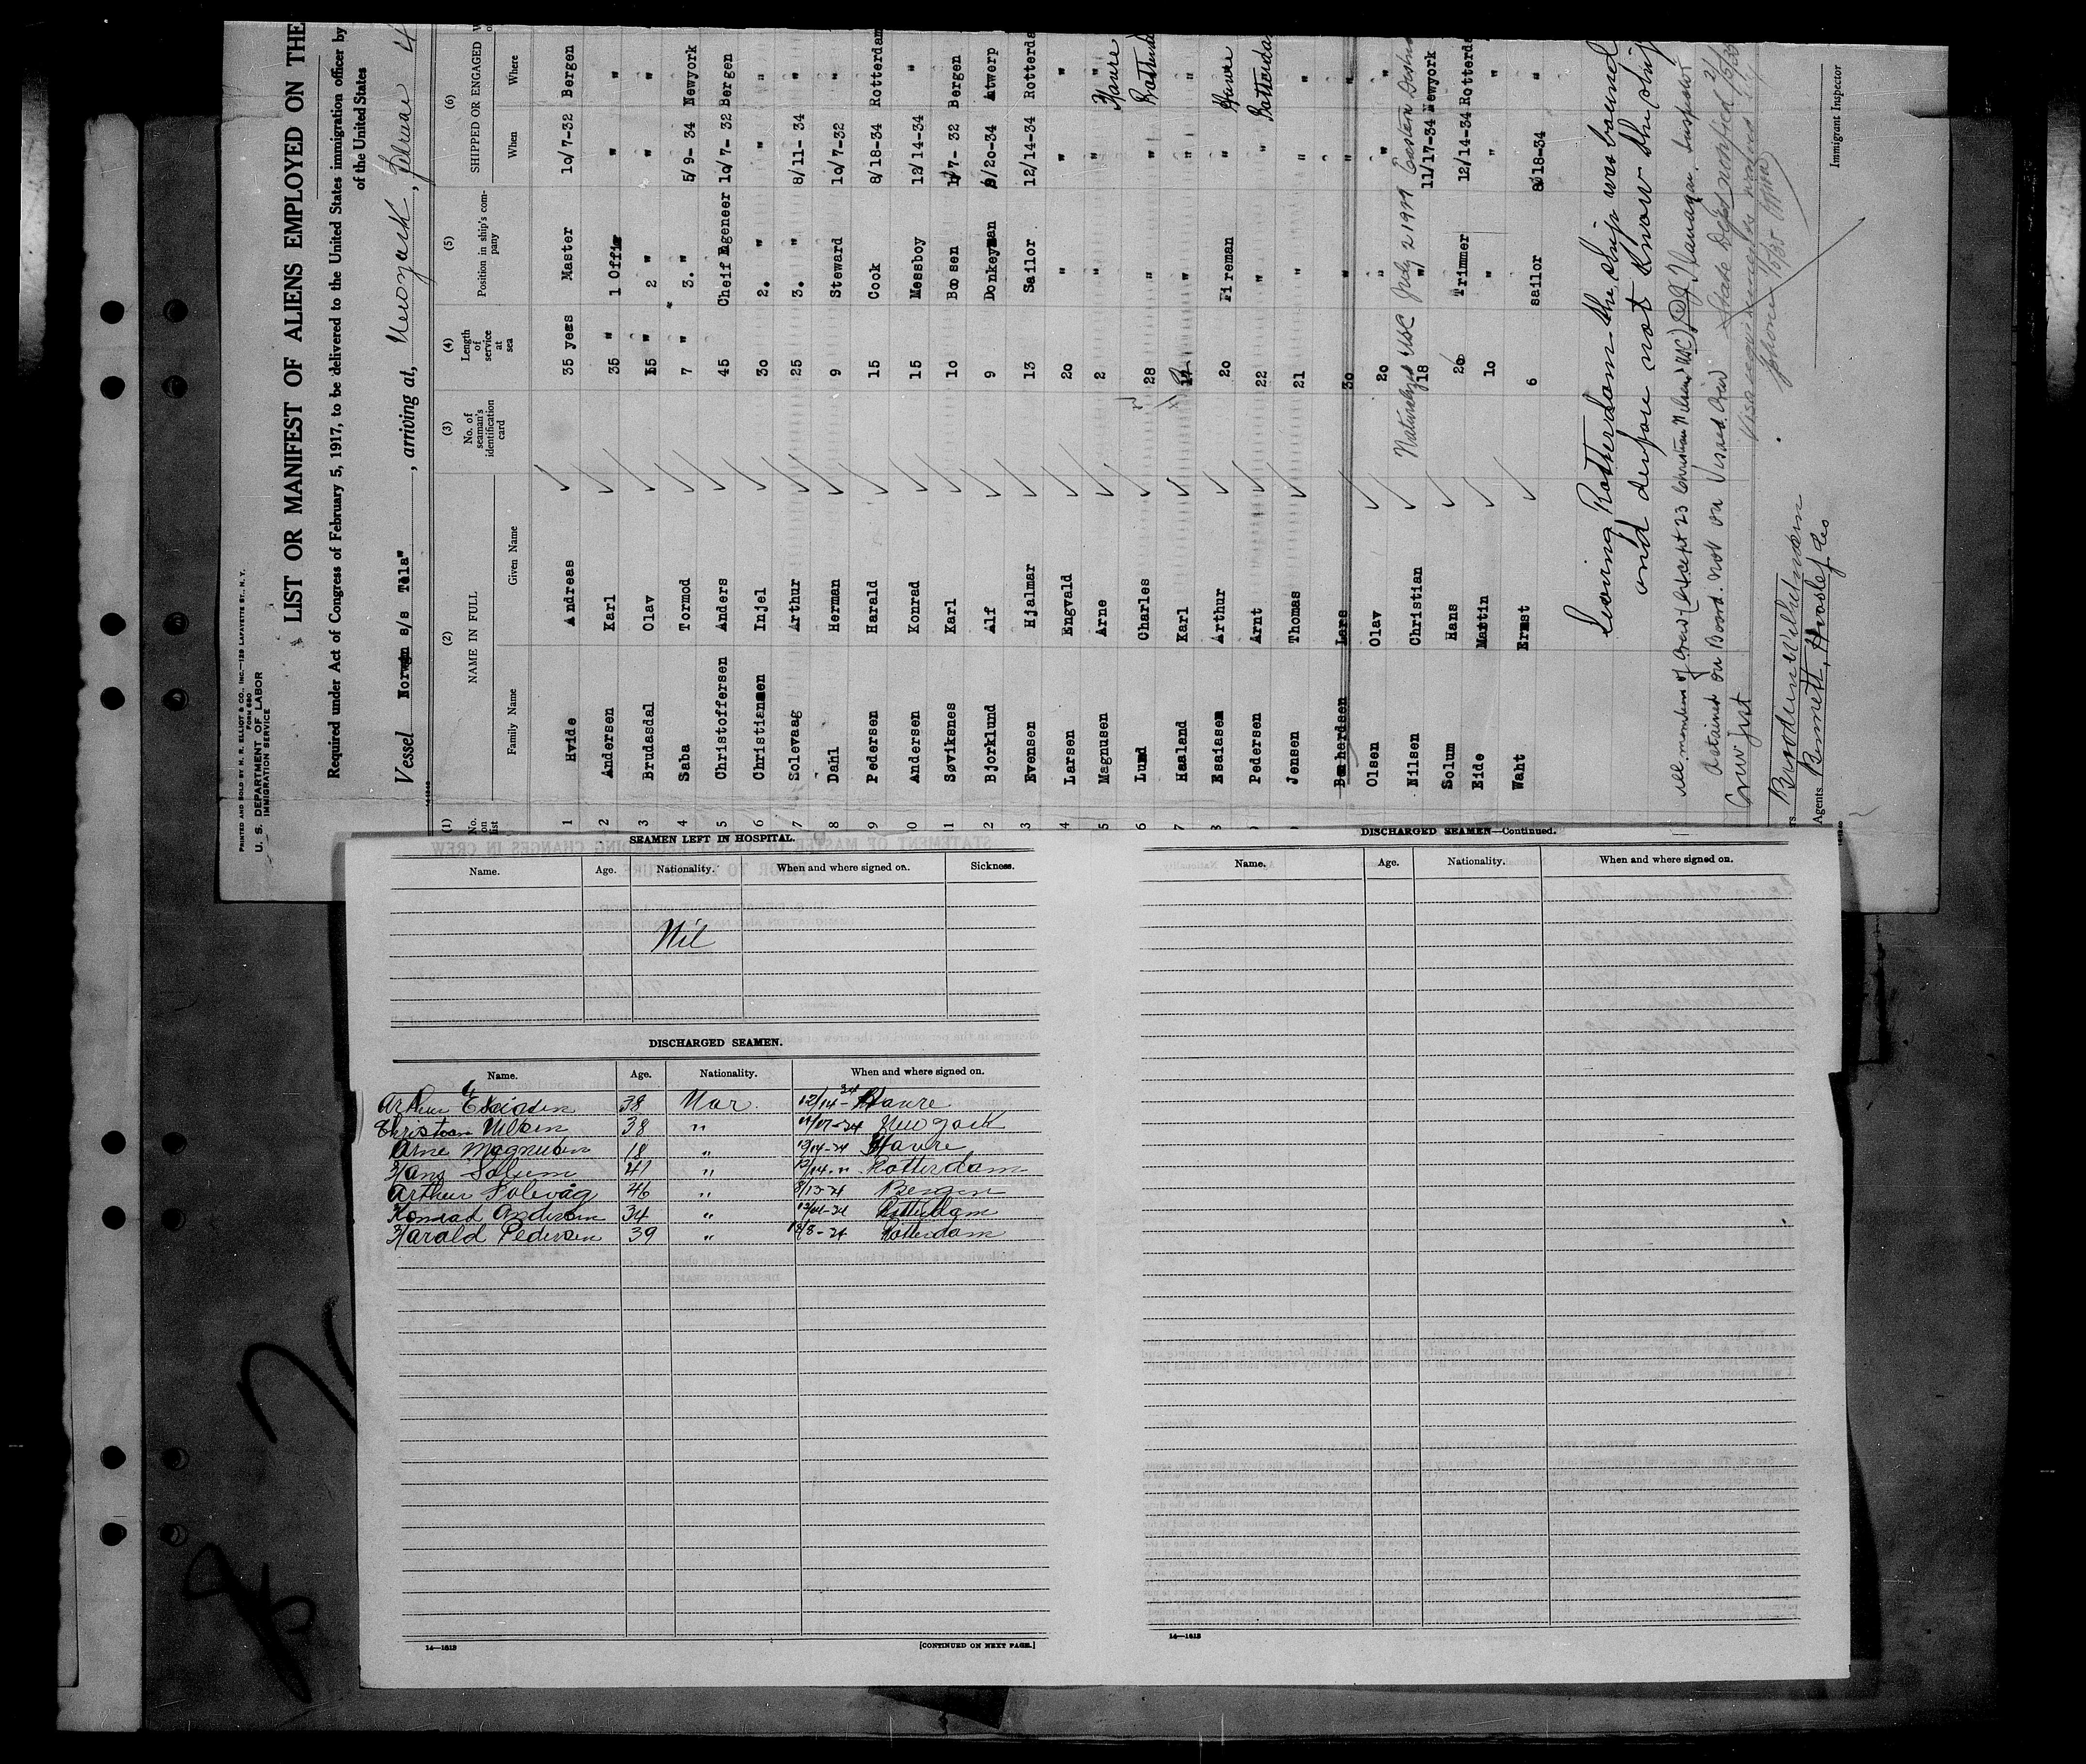 PRINTED AND SOLD BY M. R. ELLIOT & CO., INC.—129 LAFAYETTE ST., N.Y.
FORM 680
U. S. DEPARTMENT OF LABOR
IMMIGRATION SERVICE
LIST OR MANIFEST OF ALIENS EMPLOYED ON THE
Required under Act of Congress of February 5, 1917, to be delivered to the United States immigration officer by
of the United States
Vessel Norwgn s/s "Tela" , arriving at, Newyork ,
(1) (2) (3) (4) (5) (6)
No. on list NAME IN FULL No. of seaman's identification card Length of service at sea Position in ship's company SHIPPED OR ENGAGED
Family Name Given Name When Where
1 Hvide Andreas 35 years Master 10/7-32 Bergen
2 Andersen Karl 35 " 1 Offir " "
3 Brudasdal Olav 15 " 2 " " "
4 Saba Tormod 7 " 3. " 5/9- 34 Newyork
5 Christoffersen Anders 45 Cheif Egeneer 10/7- 32 Bergen
6 Christiansen Injel 30 2. " " "
7 Solevaag Arthur 25 3. " 8/11- 34 "
8 Dahl Herman 9 Steward 10/7-32 "
9 Pedersen Harald 15 Cook 8/18-34 Rotterdam
0 Andersen Konrad 15 Messboy 12/14-34 "
1 Søviksnes Karl 10 Bo sen 7- 32 Bergen
2 Bjorklund Alf 9 Donkeyman /20-34 Atwerp
3 Evensen Hjalmar 13 Sailor 12/14-34 Rotterda
4 Larsen Engvald 20 " " "
5 Magnusen Arne 2 " " Havre
6 Lund Charles 28 " "
7 Haaland Karl " " "
8 Esaiasen Arthur 20 Fireman " Havre
Pedersen Arnt 22 " " Rotterda
Jensen Thomas 21 " " "
Bernhardsen Lars 30 " " "
Olsen Olav 20 " " "
Naturalized USC July 2 1929 Eastern District
Nilsen Christian 18 " 11/17-34 Newyork
Solum Hans 20 Trimmer 12/14-34 Rotterda
Eide Martin 10 " " "
Waht Ernst 6 sailor 18-34 "
leaving Rotterdam the ship was bound
and derfore not know the ship
all members of crew (except 23 Christian Nilsen USC)
detained on Board. not on Vessed crew
Crew list
Agents Bennett, Hvoslef, Co
Immigrant Inspector
SEAMEN LEFT IN HOSPITAL.
Name. Age. Nationality. When and where signed on. Sickness.
Nil
DISCHARGED SEAMEN.
Name. Age. Nationality. When and where signed on.
Arthur Esaiasen 38 Nor. 12/14-34 Havre
Christian Nilsen 38 " 11/17-34 New York
Arne Magnusen 18 " 12/14-34 Havre
Hans Solum 41 " 12/14-" Rotterdam
Arthur Solevåg 46 " Bergen
Konrad Andersen 34 " 12/14-34 Rotterdam
Harald Pedersen 39 " Rotterdam
14—1613
[CONTINUED ON NEXT PAGE.]
DISCHARGED SEAMEN—Continued.
Name. Age. Nationality. When and where signed on.
14—1613